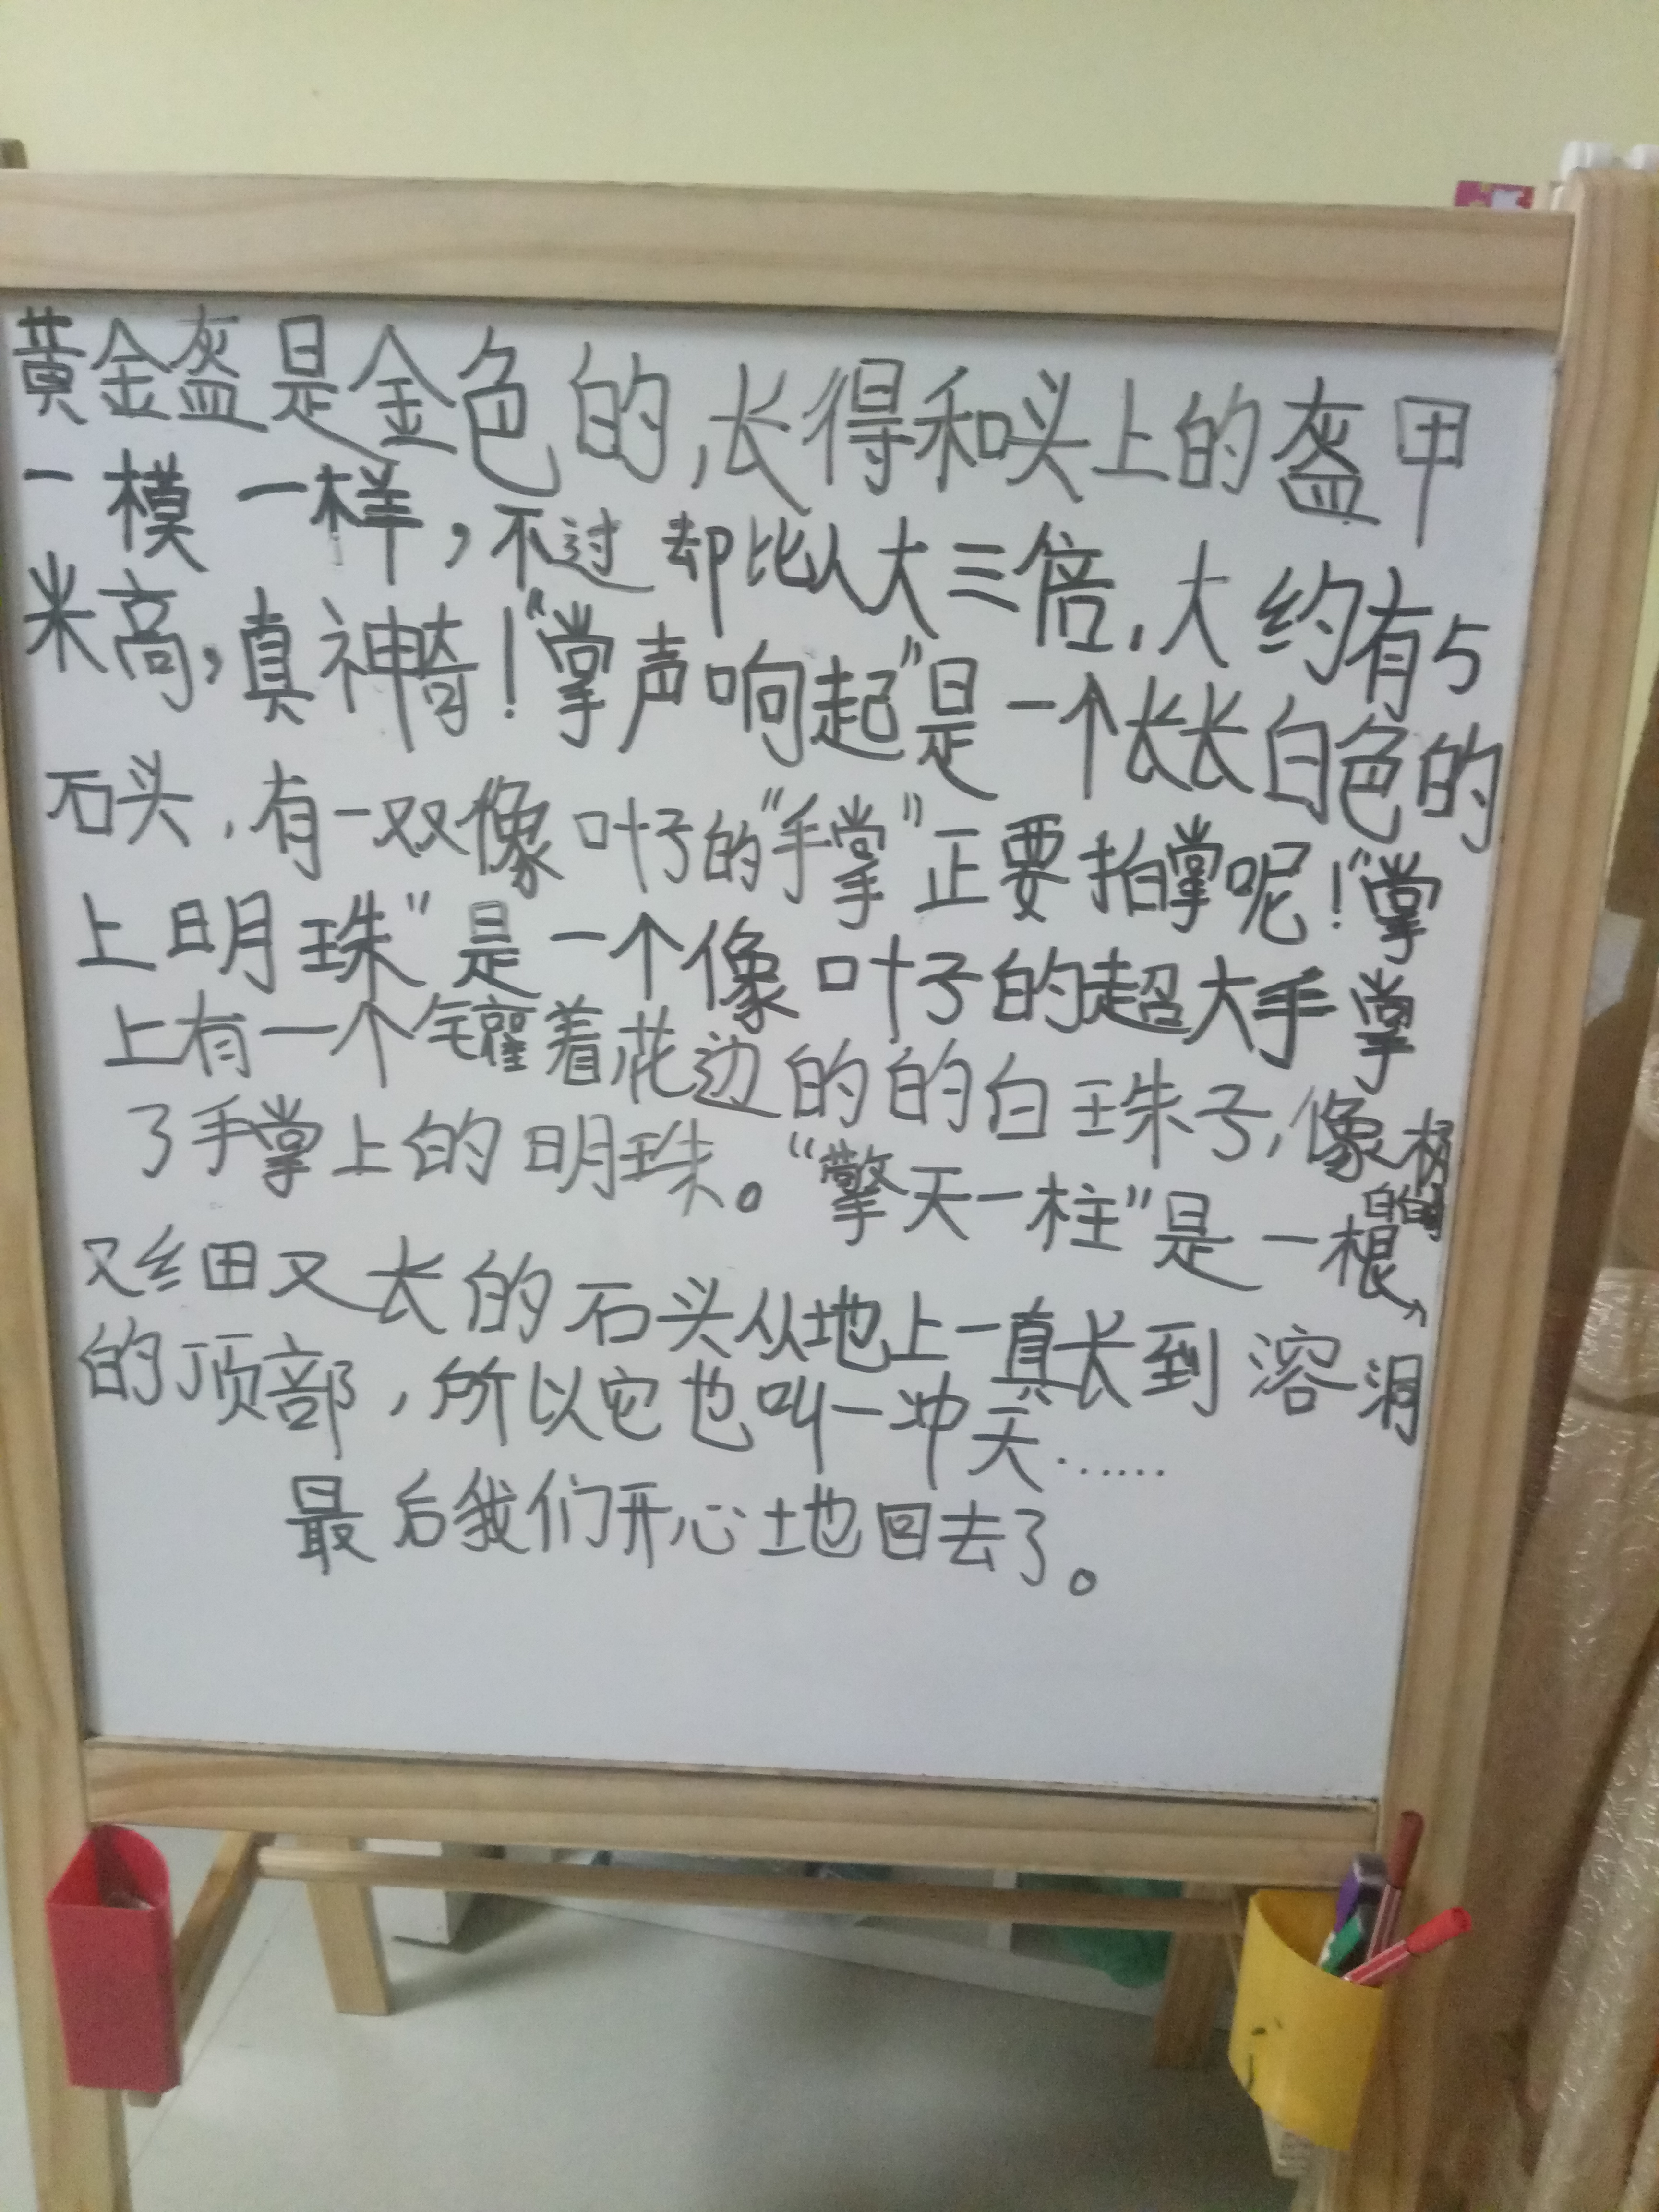 黄金盔是金色的,长得和头上的盔甲
一模一样,不过却比人大三倍,大约有5
米高,真神奇!“掌声响起”是一个长长白色的
石头,有一双像叶子的“手掌”正要拍掌呢!“掌
上明珠”是一个像叶子的超大手掌
上有一个镶着花边的的白珠子,像极
了手掌上的明珠。“擎天一柱”是一根白白的
又细又长的石头从地上一直长到溶洞
的顶部,所以它也叫一冲天……
最后我们开心地回去了。